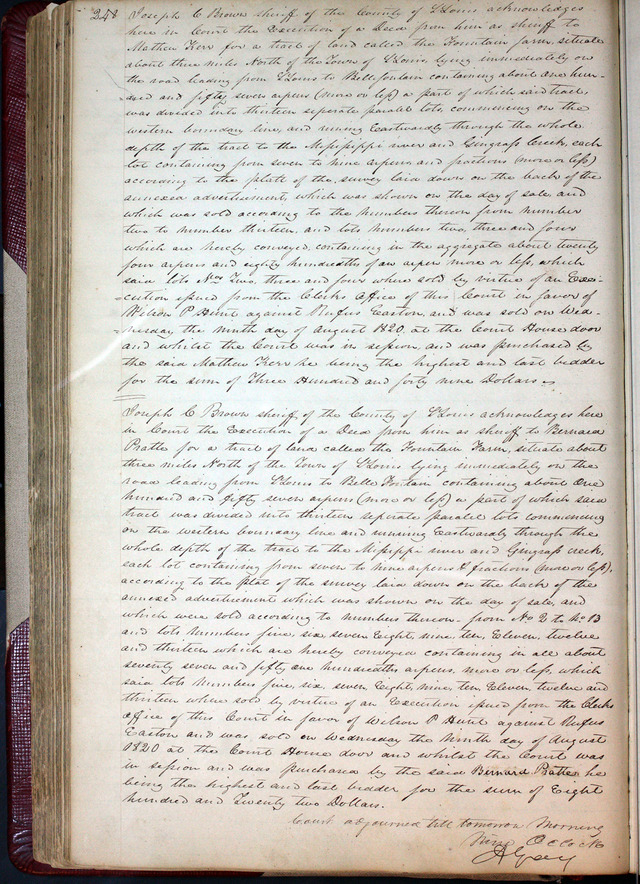 248
Joseph C Brown sheriff of the County of St Louis acknowledges
here in Court the Execution of a Deed from him as sheriff to
Mathew Kerr for a tract of land called the Fountain farm, situate
about three miles North of the Town of St Louis, lying immediately on
the road leading from St Louis to Bellefontain containing about one hun-
dred and fifty seven arpens (more or less) a part of which said tract
was divided into thirteen seperate paralel lots, commencing on the
western boundary line, and runing Eastwardly through the whole
depth of the tract to the Mississippi river and Gingrass Creek, each
lot containing from seven to nine arpens and fractions (more or less)
according to the platt of the survey laid down on the back of the
annexed advertisement, which was shown on the day of sale and
which was sold according to the numbers thereon from number
two to number thirteen, and lots numbers two, three and four
which are hereby conveyed, containing in the aggregate about twenty
four arpens and eighty hundredths of an arpen more or less, which
said lots Nos Two, three and four where sold by virtue of an Exe-
cution issued from the Clerks office of this Court in favor of
Wilson P Hunt against Rufus Easton, and was sold on Wed-
nesday the ninth day of August 1820 at the Court House door
and whilst the Court was in session, and was purchased by
the said Mathew Kerr he being the highest and last bidder
for the sum of Three Hundred and forty nine Dollars
Joseph C Brown sheriff of the County of St Louis acknowledges here
in Court the Execution of a Deed from him as sheriff to Bernard
Pratte for a tract of land called the Fountain Farm, situate about
three miles North of the Town of St Louis lying immediately on the
road leading from St Louis to Belle Fontain containing about One
hundred and fifty seven arpens (more or less) a part of which said
tract was divided into thirteen seperate paralel lots commencing
on the western boundary line and runing Eastwardly through the
whole depth of the tract to the Missippi river and Gingrass creek,
each lot containing from seven to nine arpens & fractions (more or less),
according to the plat of the survey laid down on the back of the
annexed advertisement which was shown on the day of sale, and
which were sold according to numbers thereon from No 2 to No 13
and lots numbers five, six, seven, Eight, nine, ten, Eleven, twelve
and thirteen which are hereby conveyed containing in all about
seventy seven and fifty one hundredths arpens, more or less, which
said lots numbers five, six, seven, Eight, nine, ten, Eleven, twelve and
thirteen where sold by virtue of an Execution issued from the Clerks
office of this Court in favor of Wilson P Hunt against Rufus
Easton and was sold on Wednesday the ninth day of August
1820 at the Court House door and whilst the Court was
in session and was purchased by the said Bernard Pratte he
being the highest and last bidder for the sum of Eight
hundred and Twenty two Dollars.
Court adjourned till tomorrow Morning
Nine OClock
A Gray